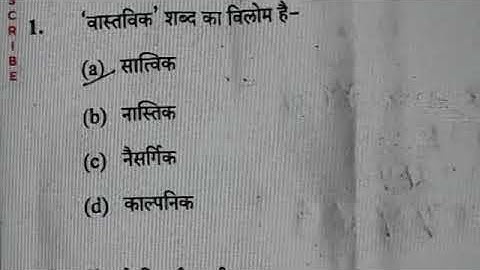 SCRIBE
1. 'वास्तविक' शब्द का विलोम है–
(a) सात्विक
(b) नास्तिक
(c) नैसर्गिक
(d) काल्पनिक